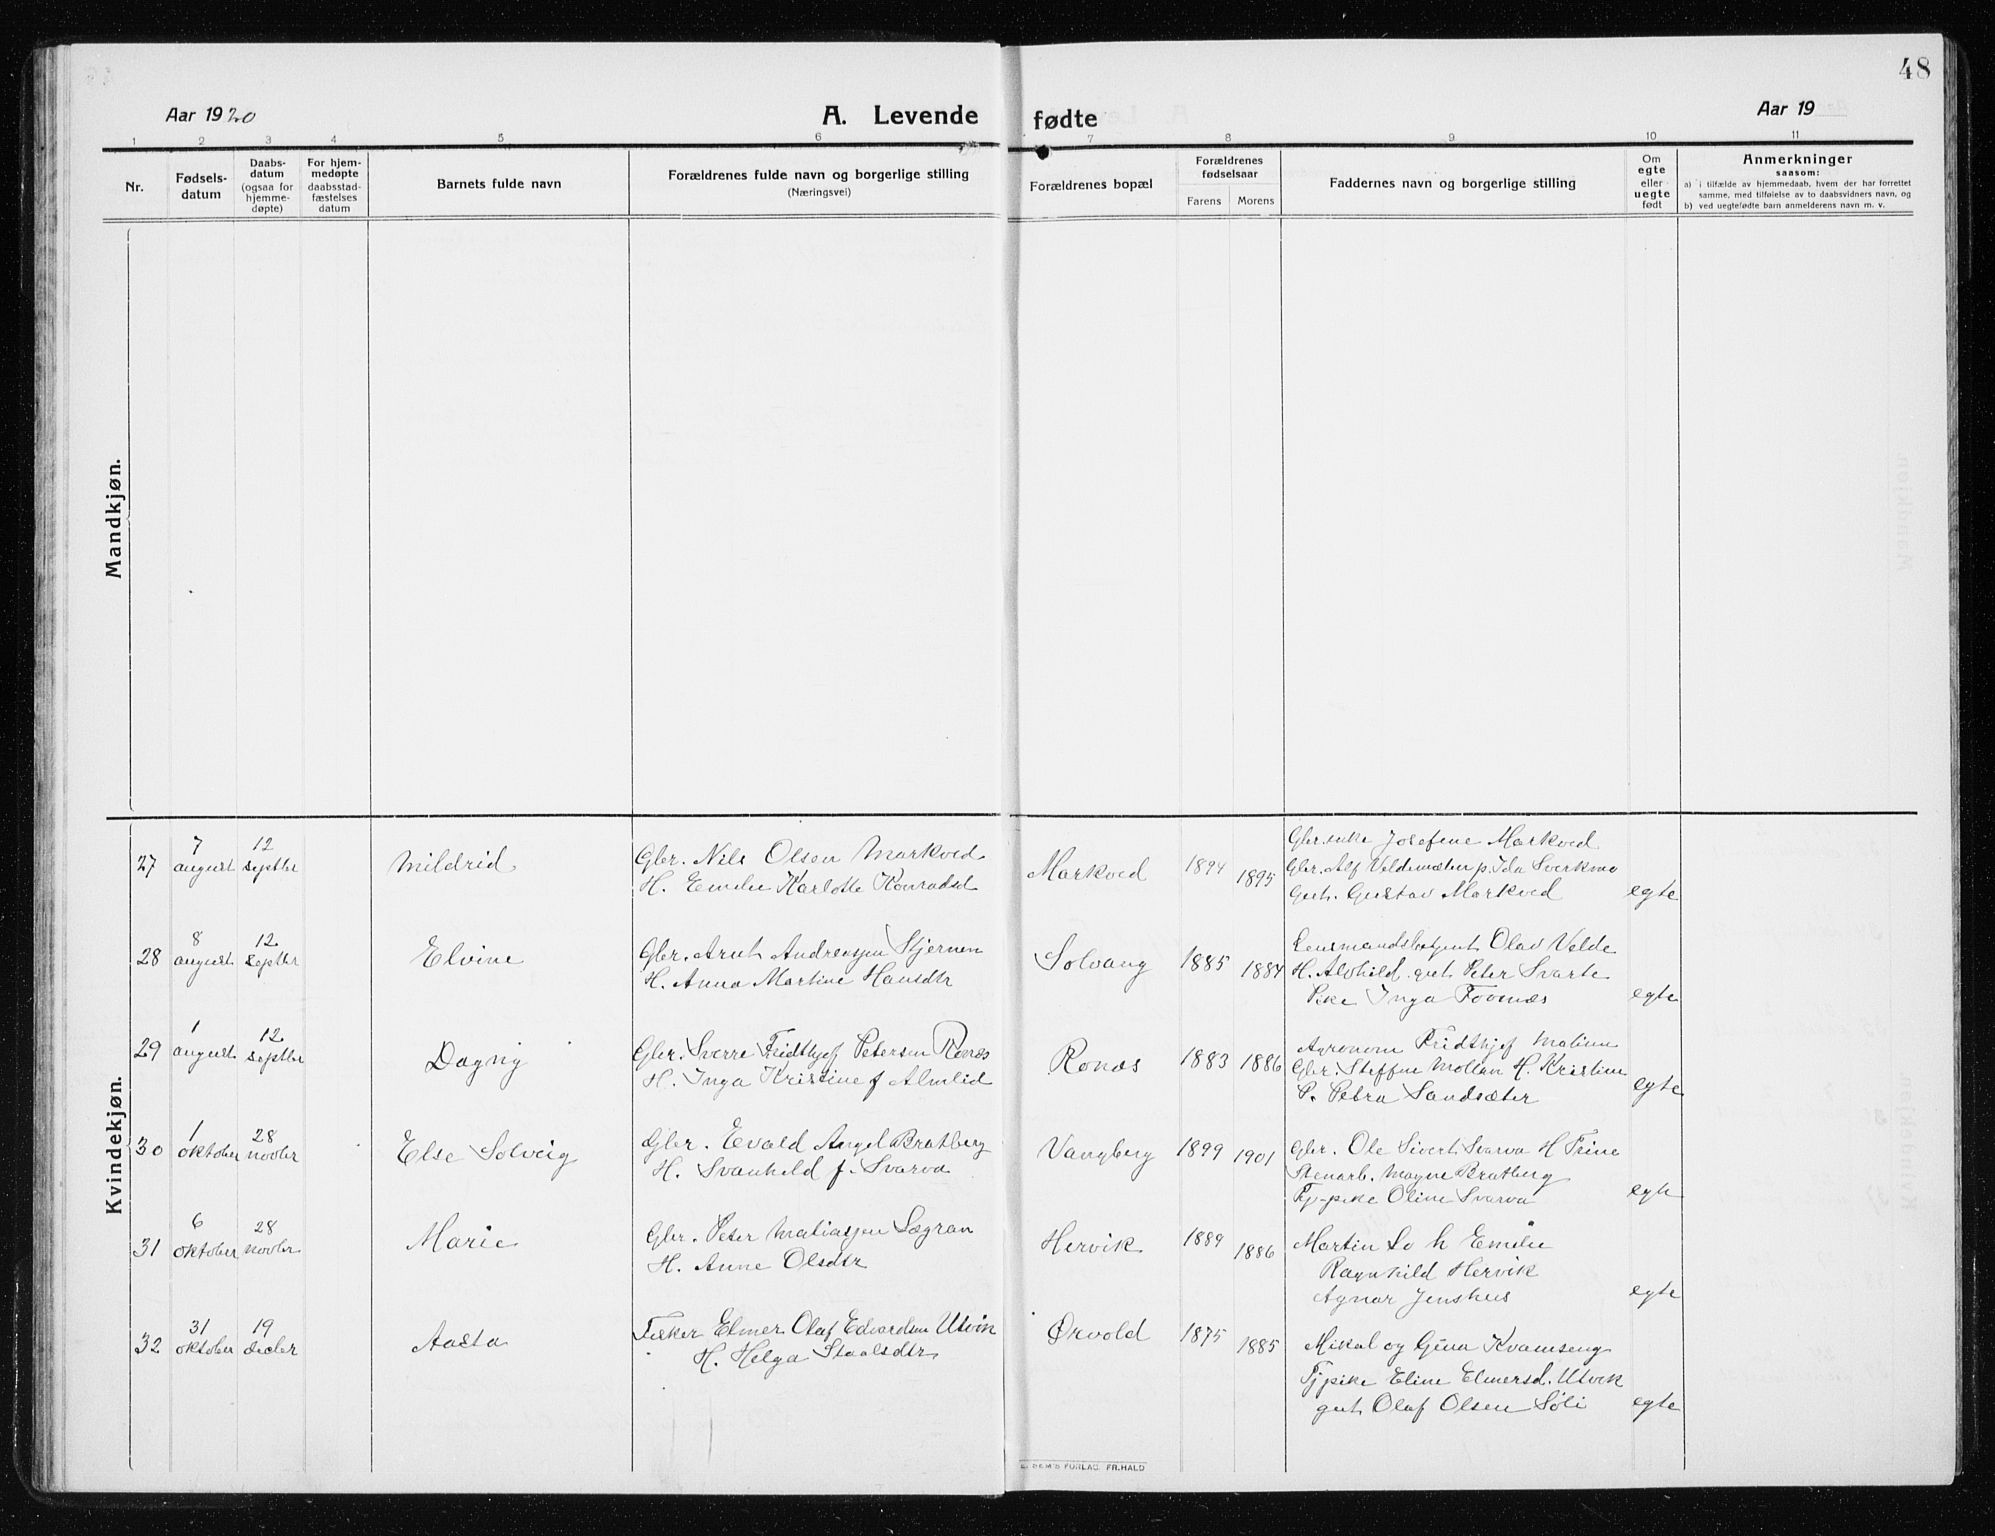 48
Aar 1920
A. Levende fødte
Aar 19
1 2 3 4 5 6 7 8 9 10 11
Nr.
Fødsels-
datum
Daabs-
datum
(ogsaa for
hjemme-
døpte)
For hjem-
medøpte
daabsstad-
fæstelses
datum
Barnets fulde navn
Forældrenes fulde navn og borgerlige stilling
(Næringsvei)
Forældrenes bopæl
Forældrenes
fødselsaar
Farens Morens
Faddernes navn og borgerlige stilling
Om
egte
eller
uegte
født
Anmerkninger
saasom:
a) i tilfælde av hjemmedaab, hvem der har forrettet
samme, med tilføielse av to daabsvidners navn, og
b) ved uegtefødte barn anmelderens navn m. v.
Mandkjøn.
Kvindekjøn.
27
7
august
12
septbr
Mildrid
Gbr. Nils Olsen Markved
H. Emelie Karlotte Konradsd
Markved
1894
1895
Gbr.enke Josefine Markved
Gbr. Alf Valdemæten p. Ida Sverkmo
Gut. Gustav Markved
egte
28
8
august
12
septbr
Elvine
Gbr. Arnt Andreassen Stjernen
H. Anna Martine Hansdtr
Solvang
1885
1884
Lensmandsbetjent Olav Velde
H. Alvhild gut Peter Svarte
Pike Inga Foosnæs
egte
29
1
august
12
septbr
Dagny
Gbr. Sverre Fridthjof Petersen Ronæs
H. Inga Kristine f Almlid
Ronæs
1883
1886
Agronom Fridthjof Malinn
Gbr. Steffen Mollan H. Kristine
P. Petra Sandsæter
egte
30
1
oktober
28
novbr
Else Solveig
Gbr. Evald Angel Bratberg
H. Svanhild f. Svarva
Vangberg
1899
1901
Gbr. Ole Sivert Svarva H Trine
Stenarb. Magne Bratberg
Tj-pike Oline Svarva
egte
31
6
oktober
28
novbr
Marie
Gbr. Peter Matiassen Sægran
H. Anne Olsdtr
Hervik
1889
1886
Martin Lo h Emilie
Ragnhild Hervik
Agnar Jenshus
egte
32
31
oktober
19
decbr
Aasta
Fisker Elmer Olaf Edvardsen Utvik
H. Helga Staalsdtr
Ørvold
1875
1885
Mikal og Gina Kvamseng
Tjpike Eline Elmersd. Utvik
gut Olaf Olsen Soli
egte
FORLAG. FR.HALD